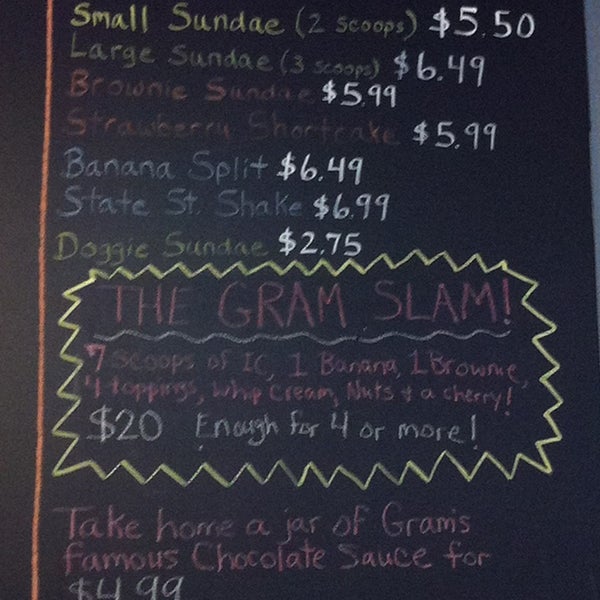 Small Sundae (2 scoops) $5.50
Large Sundae (3 scoops) $6.49
Brownie Sundae $5.99
Strawberry Shortcake $5.99
Banana Split $6.49
State St. Shake $6.99
Doggie Sundae $2.75
THE GRAM SLAM!
7 scoops of IC, 1 Banana, 1 Brownie,
4 toppings, whip cream, Nuts & a cherry!
$20 Enough for 4 or more!
Take home a jar of Gram's
famous Chocolate Sauce for
$4.99